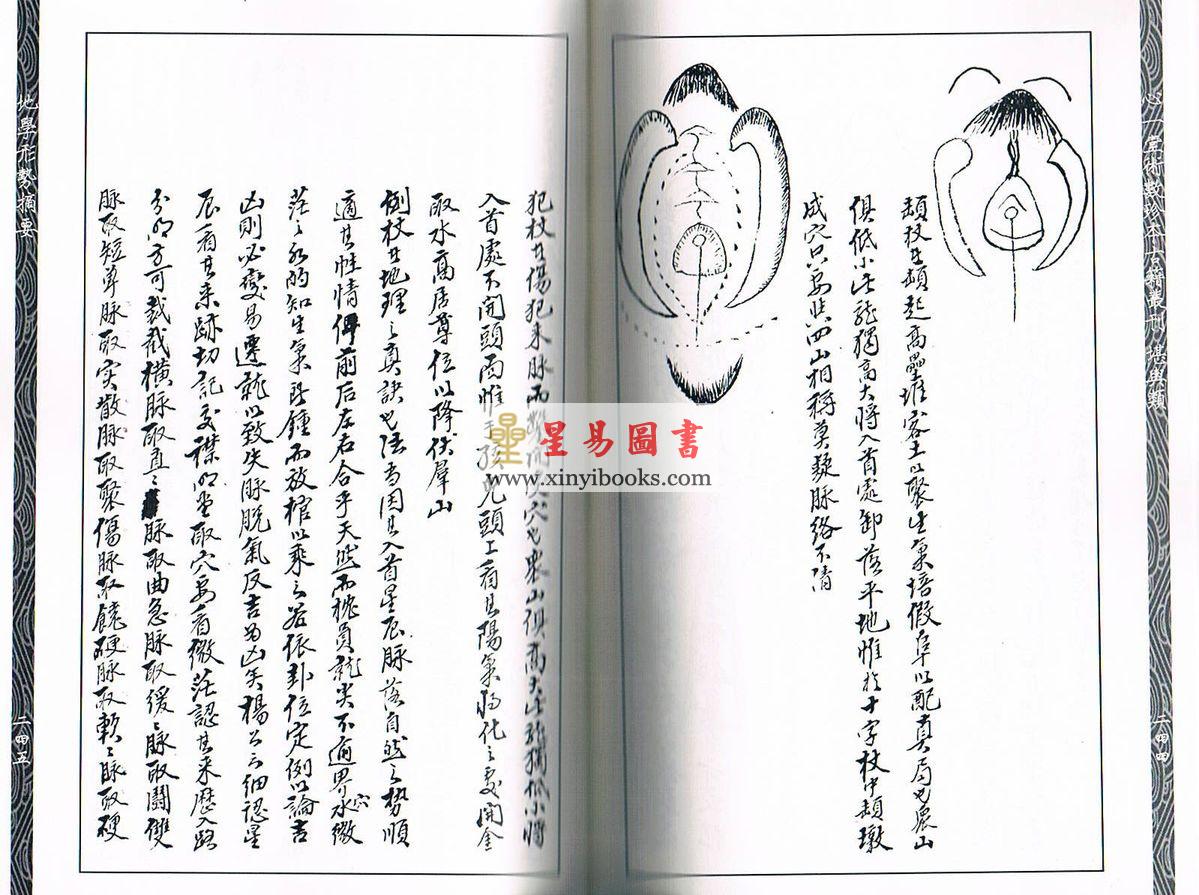 心一堂術數珍本古籍叢刊 堪輿類
二四四
頓杖者頓起高壘堆客土以聚生氣培假阜以配真局也眾山
俱低小此龍獨高大將入首處卸落平地惟於十字杖中頓墩
成穴只要與四山相稱莫疑脉絡不清
犯杖者傷犯來脉而鑿開取穴也眾山俱高大此龍獨低小將
入首處不開頭面惟于孩兒頭上看其陽氣將化之處開金
取水高居尊位以降伏羣山
倒杖者地理之真訣也法當因其入首星辰脉落自然之勢順
適其性情俾前后左右合乎天然而槐員就尖不逼界水穴微
茫之的知生氣所鍾而放棺以乘之若依卦位定例以論吉
凶則必變易遷就以致失脉脫氣反吉為凶矣楊公云細認星
辰看其來跡切記交襟明堂取穴要看微茫認其來歷入路
分明方可裁截橫脉取直脉取曲急脉取緩緩脉取鬪雙
脉取短單脉取实散脉取聚傷脉取饒硬脉取軟軟脉取硬
地學形勢摘要
二四五
星易圖書
www.xinyibooks.com